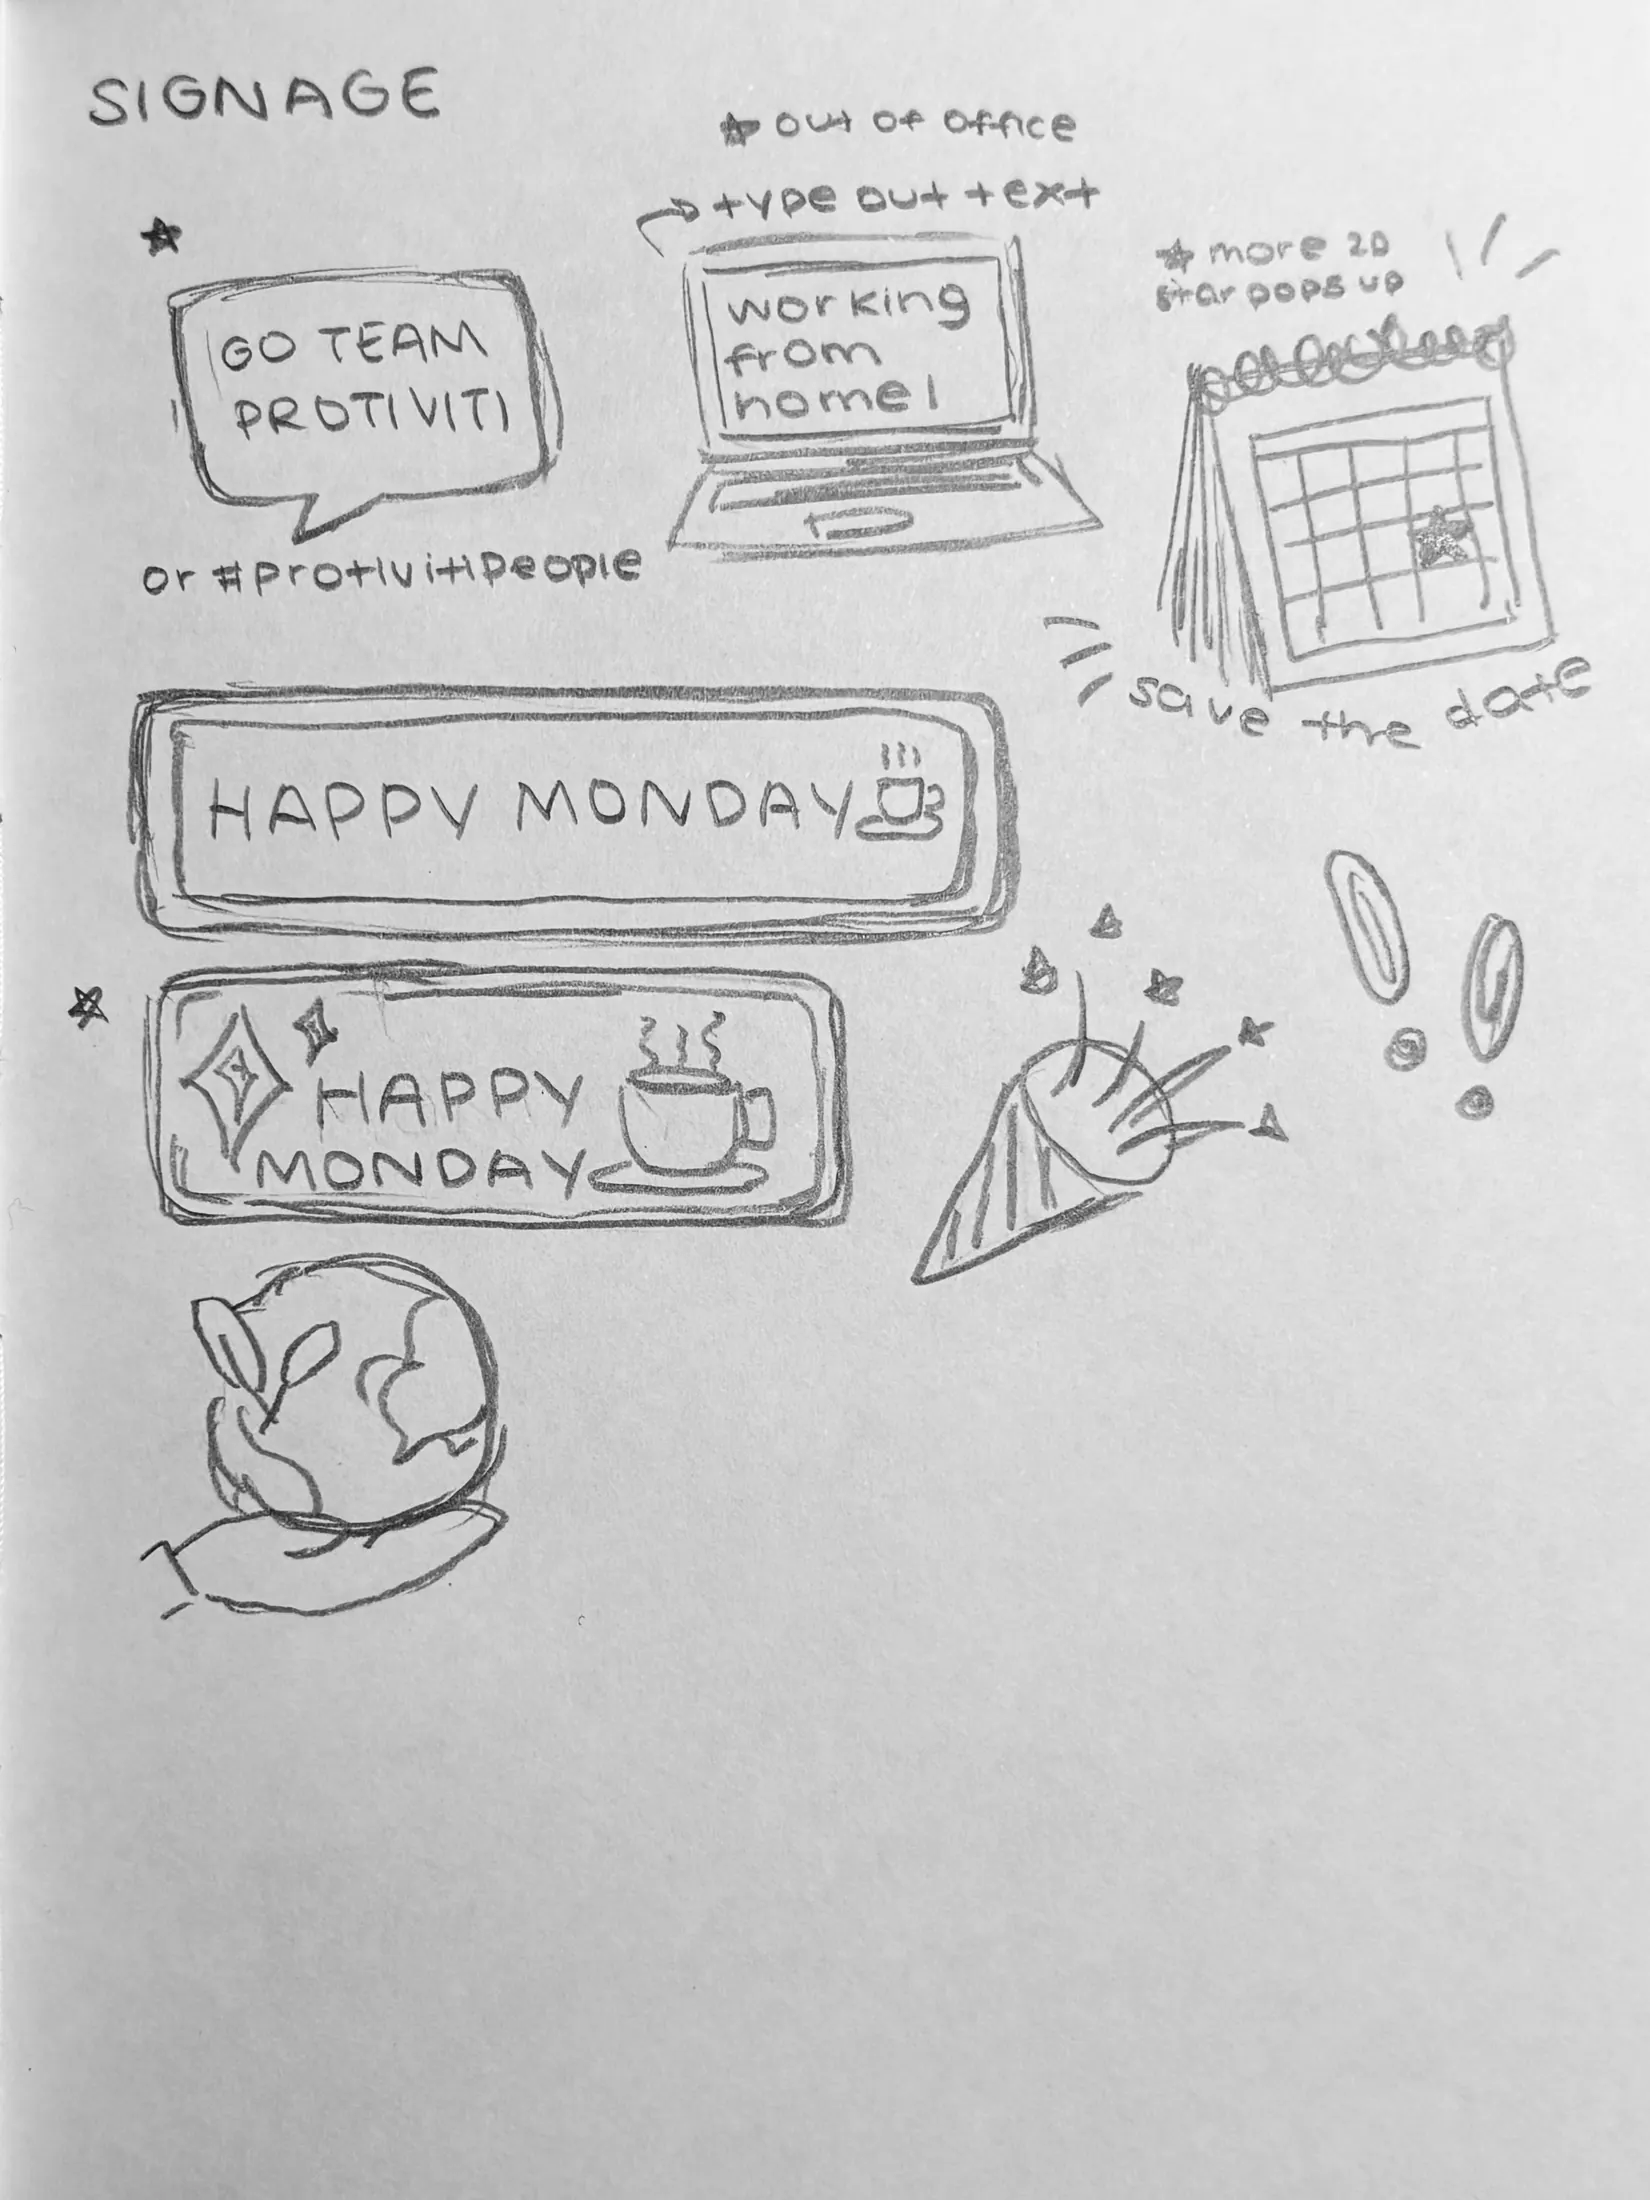 SIGNAGE
out of office
type out text
more 2D
star pops up
GO TEAM
PROTIVITI
or #protivitipeople
working
from
home|
save the date
HAPPY MONDAY
HAPPY
MONDAY